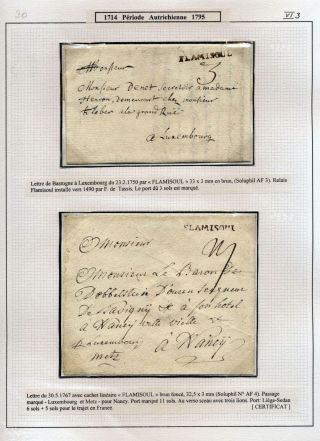 20
1714 Période Autrichienne 1795
VI 3
FLAMISOUL
3
Monsieur
Monsieur Denet Secretaire a madame
demeurant chez monsieur
Kleber a la grand Rue
a Luxembourg
Lettre de Bastogne à Luxembourg du 23.2.1750 par « FLAMISOUL » 33 x 3 mm en brun, (Soluphil AF 3). Relais
Flamisoul installé vers 1490 par F. de Tassis. Le port dû 3 sols est marqué.
FLAMISOUL
Monsieur
Monsieur Le Baron De
Dobbelstein
De Savigny & à son hotel
a Nancy ville vielle
Luxembourg
Metz à Nancy
Lettre du 30.5.1767 avec cachet linéaire « FLAMISOUL » brun foncé, 32,5 x 3 mm (Soluphil N° AF 4). Passage
marqué - Luxembourg et Metz - pour Nancy. Port marqué 11 sols. Au verso sceau avec trois lions. Port: Liège-Sedan
6 sols + 5 sols pour le trajet en France.
[ CERTIFICAT ]